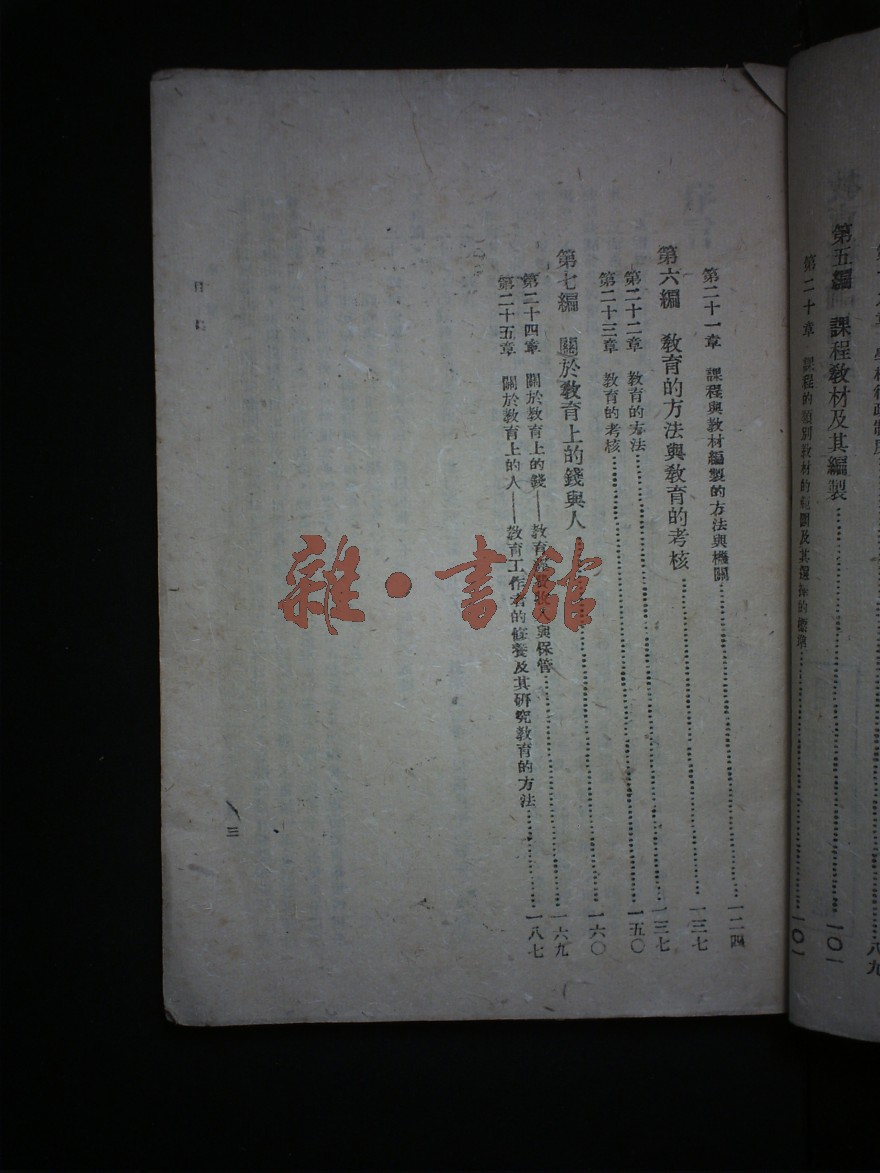 第五編 課程教材及其編製……一〇一
第二十章 課程的類別教材的範圍及其選擇的標準……一〇一
第二十一章 課程與教材編製的方法與機關……一二四
第六編 教育的方法與教育的考核……一三七
第二十二章 教育的方法……一三七
第二十三章 教育的考核……一五〇
第七編 關於教育上的錢與人……一六〇
第二十四章 關於教育上的錢——教育 與保管……一六九
第二十五章 關於教育上的人——教育工作者的修養及其研究教育的方法……一八七
三
雜·書館